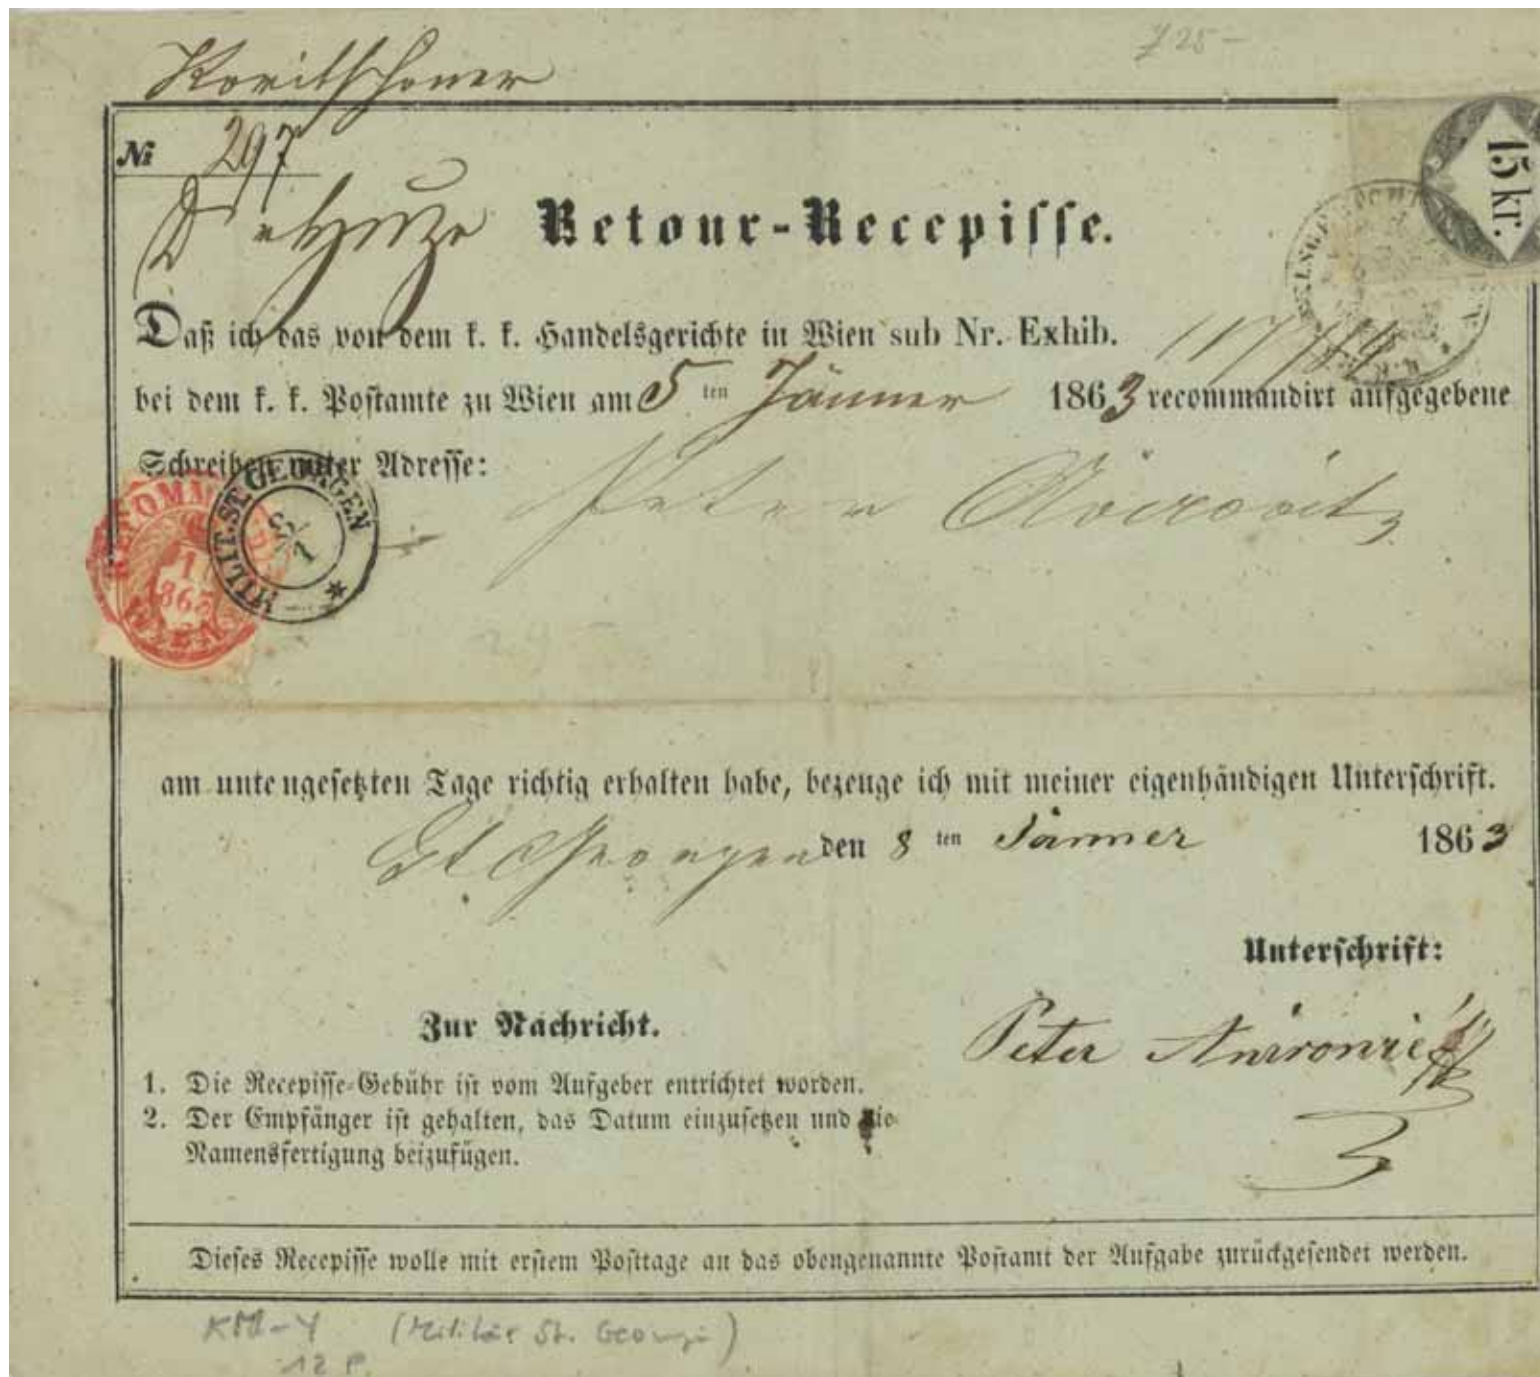 Koritschoner
725-
№ 297
15 kr.
Retour-Recepisse.
Daß ich das von dem k. k. Handelsgerichte in Wien sub Nr. Exhib.
bei dem k. k. Postamte zu Wien am 5ten Jänner 1863 recommandirt aufgegebene
Schreiben unter Adresse:
Peter
MILIT. ST. GEORGEN
8/1
RECOMMANDIRT
WIEN
am untengesetzten Tage richtig erhalten habe, bezeuge ich mit meiner eigenhändigen Unterschrift.
St Georgen den 8ten Jänner 1863
Unterschrift:
Peter
Zur Nachricht.
1. Die Recepisse-Gebühr ist vom Aufgeber entrichtet worden.
2. Der Empfänger ist gehalten, das Datum einzusetzen und die
Namensfertigung beizufügen.
Dieses Recepisse wolle mit erstem Posttage an das obengenannte Postamt der Aufgabe zurückgesendet werden.
KM-Y (Militär St. Georgi)
12 P.